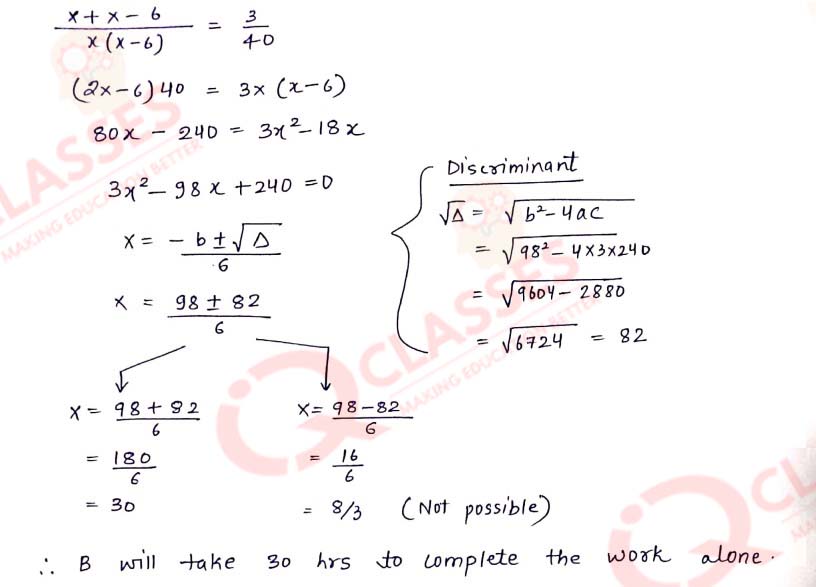 x + x - 6 / x(x-6) = 3/40
(2x-6)40 = 3x(x-6)
80x - 240 = 3x² - 18x
3x² - 98x + 240 = 0
x = -b ± √Δ / 6
x = 98 ± 82 / 6
Discriminant
√Δ = √b² - 4ac
= √98² - 4×3×240
= √9604 - 2880
= √6724 = 82
x = 98 + 82 / 6
= 180/6
= 30
x = 98 - 82 / 6
= 16/6
= 8/3 (Not possible)
∴ B will take 30 hrs to complete the work alone.
CLASSES
MAKING EDUCATION BETTER
CLASSES
MAKING EDUCATION BETTER
CL
MAKING